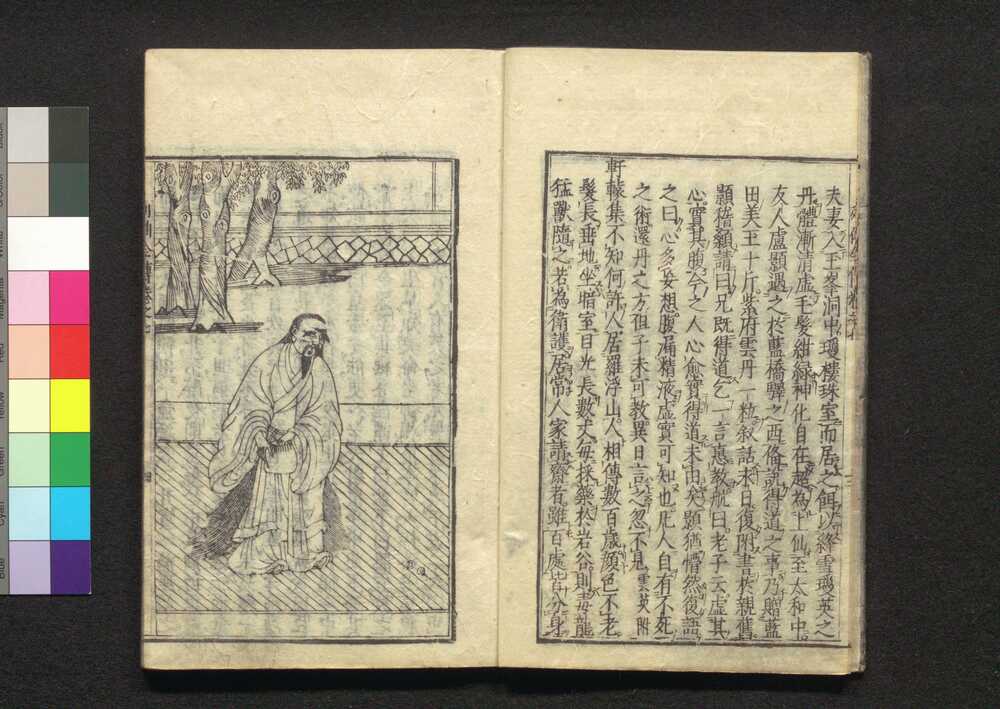 夫妻入玉峯洞中瓊樓珠室而居之餌以絳雪瓊英之
丹體漸清虛毛髮紺綠神化自在超為上仙至太和中
友人盧顥遇之於藍橋驛之西備說得道之事乃贈藍
田美玉十斤紫府雲丹一粒叙話永日復附書於親舊
顥稽顙請曰兄既得道乞一言惠教航曰老子云虛其
心實其腹今之人心愈實得道未由矣顥猶懵然復語
之曰心多妄想腹漏精液虛實可知也凡人自有不死
之術還丹之方但子未可教異日言之忽不見雲英附
軒轅集不知何許人居羅浮山人相傳數百歲顏色不老
髮長垂地坐暗室目光長數丈每採藥於岩谷則毒龍
猛獸隨之若為衛護居常人家請齋者雖百處皆分身
Black
White
Magenta
Red
Yellow
Green
Cyan
Blue